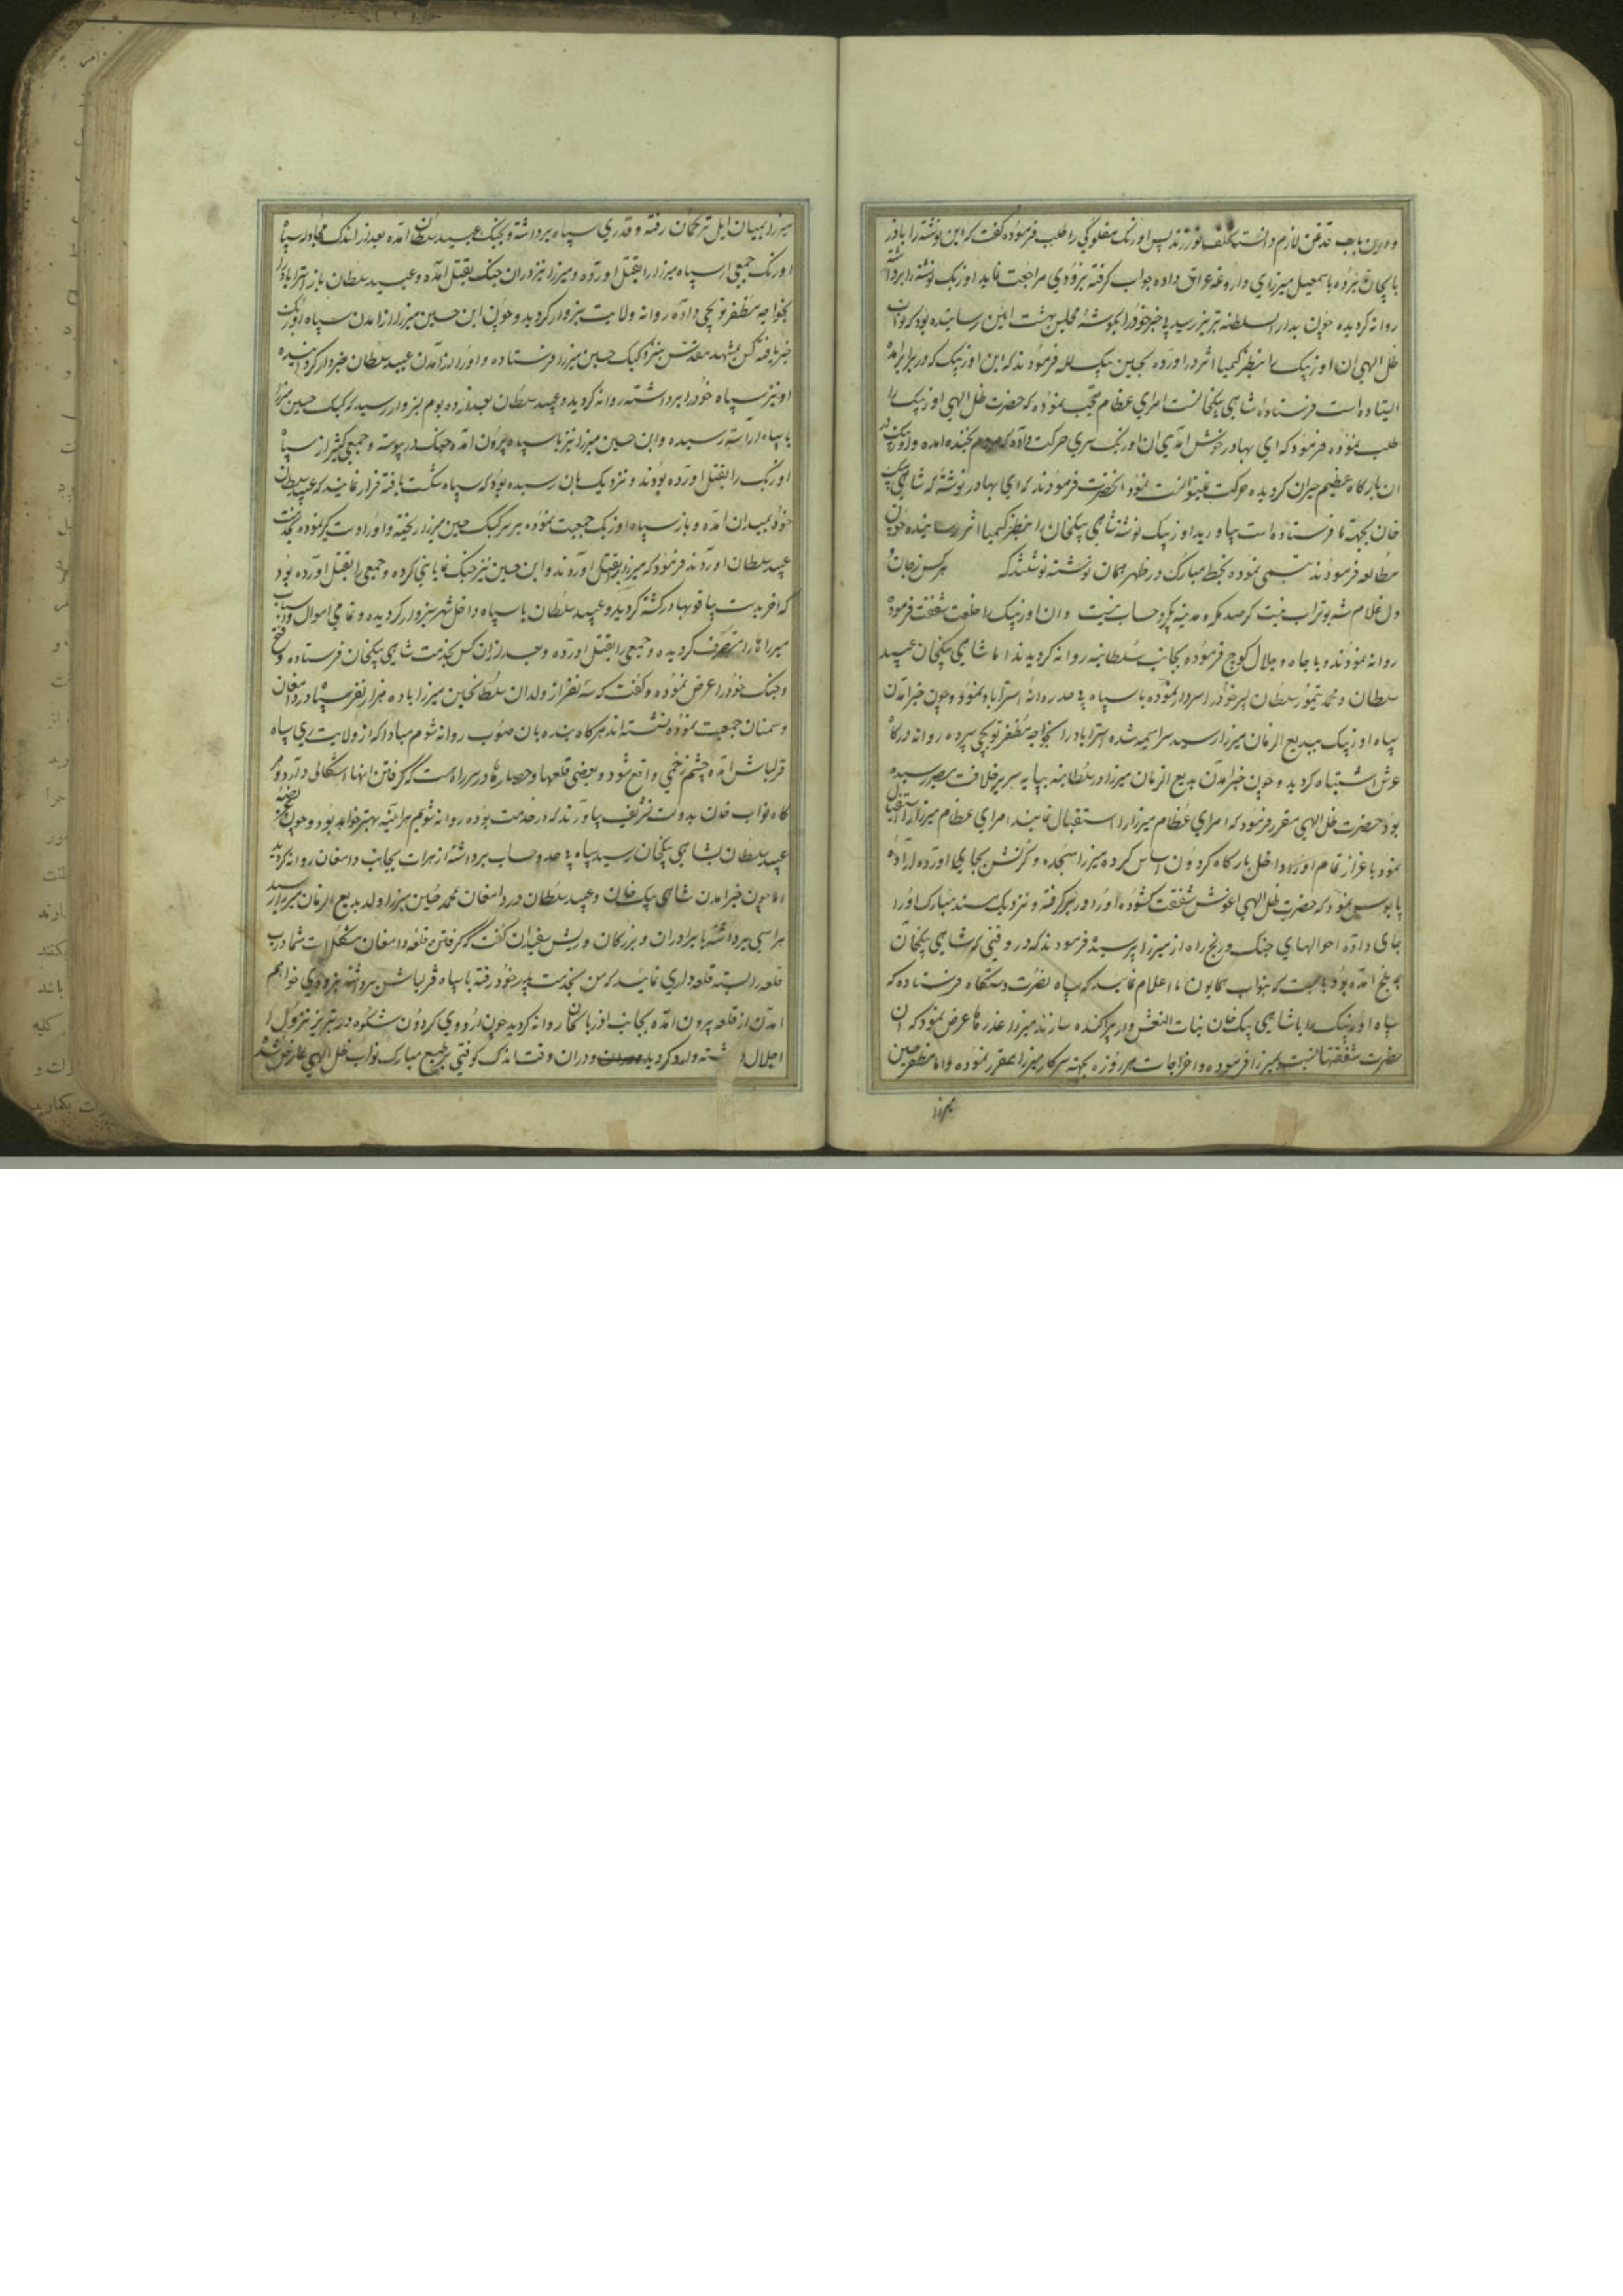 ودرین باب قدغن لازم دانسته تخلف نورزند پس اوزبک مفلوکی را طلب فرموده گفت که این نوشته را باذر
بایجان برده باسمعیل میرزای داروغه عراق داده جواب گرفته بزودی مراجعت نماید اوزبک نوشته را برداشته
روانه گردیده چون بدار السلطنه تبریز رسید خبر خودرا بگوشه مجلس بهشت آیین رسانیده بود که نواب
ظل الهی ان اوزبیک را بنظر کیمیا اثر دراورده بحسین بیک لله فرمودند که این اوزبیک که در برابر
ایستاده است فرستاده شاهی بیکخانست امرای عظام تعجب نموده که حضرت ظل الهی اوزبیک را
طلب نموده فرمود که ای بهادر خوش آمدی ان اوزبک سری حرکت داده که مردم بخنده امده واوزبیک در
ان بارگاه عظیم حیران گردیده حرکت نمیتوانست نمود انحضرت فرمودند که ای بهادر نوشته که شاهی بیک
خان بجهة ما فرستاده است بیاورید اوزبیک نوشته شاهی بیکخان را بنظر کیمیا اثر رسانیده چون
مطالعه فرمودند تبسمی نموده بخط مبارک در ظهر همان نوشته نوشتند که هر کس زجان و
دل غلام شه بوتراب نیست کر صد مکه ومدینه بگیرد حساب نیست وان اوزبیک را خلعت شفقت فرموده
روانه نمودند وبا جاه وجلال کوچ فرموده بجانب سلطانیه روانه گردیدند اما شاهی بیکخان عبید
سلطان ومحمد تیمور سلطان پسر خودرا سردار نموده با سپاه بیحد روانه استراباد نمود وچون خبر آمدن
سپاه اوزبیک ببدیع الزمان میرزا رسید سراسیمه شده استراباد را بخواجه مظفر توبچی سپرده روانه درگاه
عرش اشتباه گردید وچون خبر امدن بدیع الزمان میرزا در سلطانیه بپایه سریر خلافت مصیر رسیده
بود حضرت ظل الهی مقرر فرمود که امرای عظام میرزا را استقبال نمایند امرای عظام میرزا را استقبال
نمود باعزاز تمام اورا داخل بارگاه گردون اساس کرده میرزا سجده وکرنش بجای اورده اراده
پابوس نمود که حضرت ظل الهی اغوش شفقت گشوده اورا دربر گرفته ونزدیک مسند مبارک اورا
جای داده احوالهای جنگ ورنج راه از میرزا پرسیده فرمودند که در وقتی که شاهی بیکخان
ببلخ امده بود میبایست که بنواب همایون ما اعلام نماید که سپاه نصرت دستگاه فرستاده که
سپاه اوزبیک را با شاهی بیک خان بنات النعش وار پراکنده سازند میرزا عذرها عرض نمود که ان
حضرت شفقتها نسبت بمیرزا فرموده واخراجات هر روزه بجهة سرکار میرزا مقرر نموده واما مظفر حسین
میرزا
میرزا بمیان ایل ترکمان رفته وقدری سپاه برداشته وبجنگ عبید سلطان امده بعد از اندک مجادله سپاه
اوزبک جمعی از سپاه میرزا را بقتل اورده ومیرزا نیز دران جنگ بقتل آمده وعبید سلطان باز استراباد را
بخواجه مظفر توبچی داده روانه ولایت سبزوار گردید وچون ابن حسین میرزا از امدن سپاه اوزبک
خبر یافته کس بمشهد مقدس بنزد کپک حسین میرزا فرستاده واورا از آمدن عبید سلطان خبردار گردانیده
او نیز سپاه خودرا برداشته روانه گردید وعبید سلطان بعد از ده یوم بسبزوار رسید که کپک حسین میرزا
با سپاه اراسته رسیده وابن حسین میرزا نیز با سپه بیرون امده جنگ درپیوسته وجمعی کثیر از سپاه
اوزبک را بقتل اورده بودند ونزدیک بان رسیده بود که سپاه شکست یافته فرار نمایند که عبید سلطان
خود بمیدان امده وباز سپاه اوزبک جمعیت نموده بر سر کپک حسین میرزا ریخته واورا دستگیر نموده بخدمت
عبید سلطان اوردند فرمود که میرزا را بقتل اوردند وابن حسین نیز جنگ نمایانی کرده وجمعی را بقتل اورده بود
که اخر بدست بیاقو بهادر کشته گردید وعبید سلطان با سپاه داخل شهر سبزوار گردیده وتمامی اموال واسباب
میرزاها را متصرف گردیده وجمعی را بقتل اورده وبعد ازان کس بخدمت شاهی بیکخان فرستاده وفتح
وجنگ خودرا عرض نموده وگفت که سه نفر از ولدان سلطانحسین میرزا با ده هزار نفر سپاه در دامغان
وسمنان جمعیت نموده نشسته اند هرگاه بنده بان صوب روانه شوم مبادا که از ولایت ری سپاه
قزلباش امده چشم زخمی واقع شود وبعضی قلعها وحصارها در سر راه هست که گرفتن انها اشکالی دارد
هرگاه نواب خان بدولت تشریف بیاورند که در خدمت بوده روانه شویم هراینه بهتر خواهد بود وچون عریضه
عبید سلطان بشاهی بیکخان رسید سپاه بیحد وحساب برداشته از هرات بجانب دامغان روانه گردید
اما چون خبر امدن شاهی بیک خان وعبید سلطان در دامغان بمحمد حسین میرزا ولد بدیع الزمان میرزا رسید
هراسی برداشته با برادران وبزرگان وریش سفیدان گفت که گرفتن قلعه دامغان مشکلات شما درب
قلعه را بسته قلعه داری نمایید که من بخدمت پدر خود رفته با سپاه قزلباش برداشته بزودی خواهم
امدن از قلعه بیرون امده بجانب اذربایجان روانه گردید چون اردوی گردون شکوه در تبریز نزول
اجلال داشته وارد گردید ودران وقت اندک کوفتی بر طبع مبارک نواب ظل الهی عارض شده